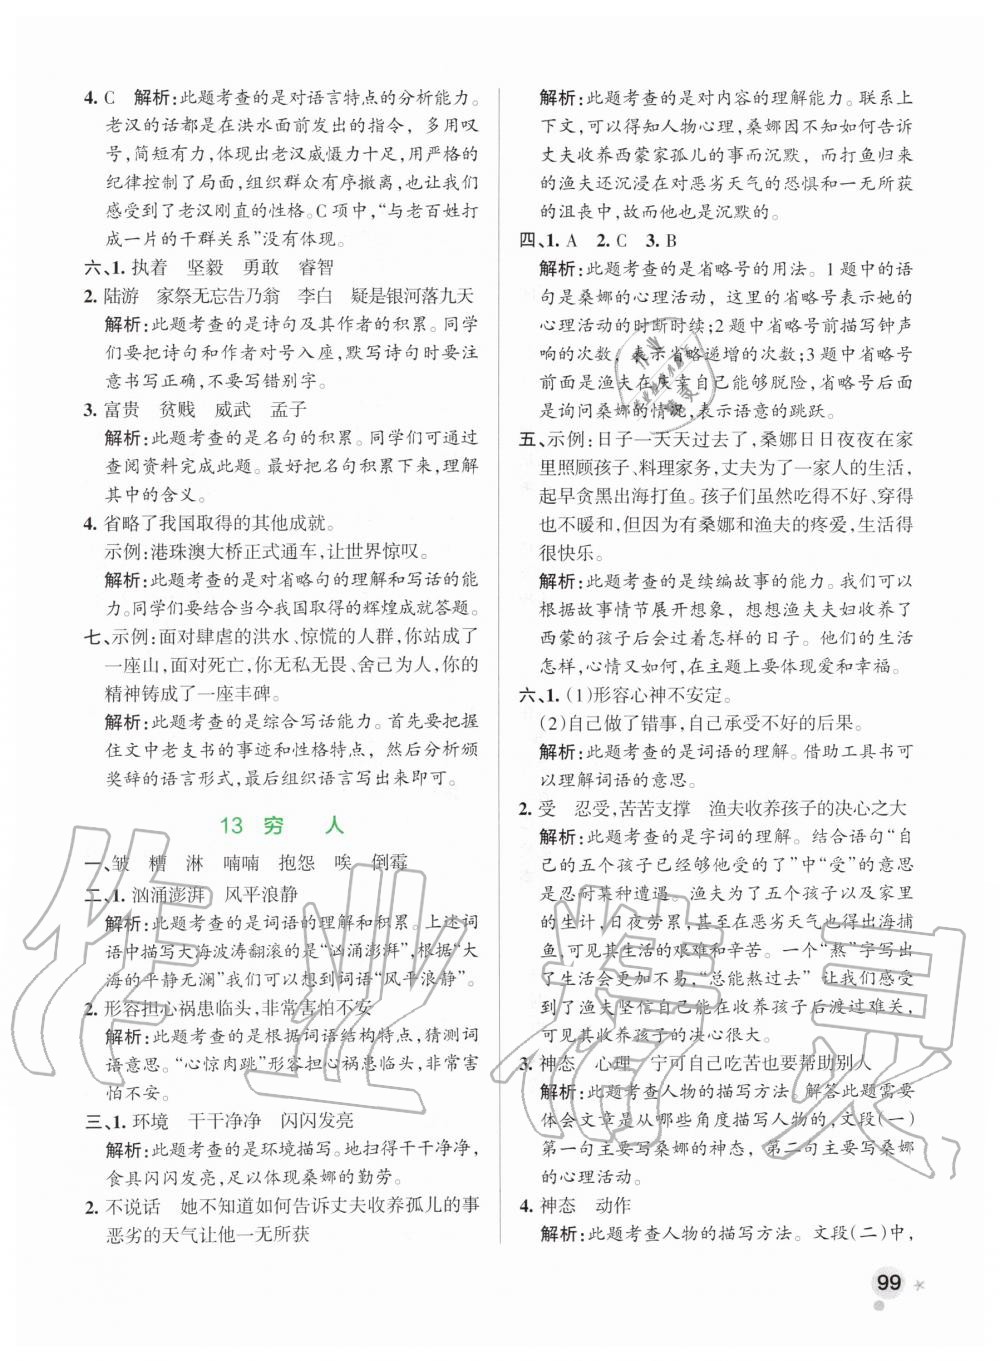 4. C　解析:此题考查的是对语言特点的分析能力。
老汉的话都是在洪水面前发出的指令，多用叹
号,简短有力,体现出老汉威慑力十足,用严格的
纪律控制了局面,组织群众有序撤离,也让我们
感受到了老汉刚直的性格。C项中,“与老百姓打
成一片的干群关系”没有体现。
六、1. 执着　坚毅　勇敢　睿智
2. 陆游　家祭无忘告乃翁　李白　疑是银河落九天
解析:此题考查的是诗句及其作者的积累。同学
们要把诗句和作者对号入座,默写诗句时要注
意书写正确,不要写错别字。
3. 富贵　贫贱　威武　孟子
解析:此题考查的是名句的积累。同学们可通过
查阅资料完成此题。最好把名句积累下来,理解
其中的含义。
4. 省略了我国取得的其他成就。
示例:港珠澳大桥正式通车,让世界惊叹。
解析:此题考查的是对省略句的理解和写话的能
力。同学们要结合当今我国取得的辉煌成就答题。
七、示例:面对肆虐的洪水、惊慌的人群,你站成了
一座山,面对死亡,你无私无畏、舍己为人,你的
精神铸成了一座丰碑。
解析:此题考查的是综合写话能力。首先要把握
住文中老支书的事迹和性格特点，然后分析颁
奖辞的语言形式,最后组织语言写出来即可。
13　穷　人
一、皱　糟　淋　喃喃　抱怨　唉　倒霉
二、1. 汹涌澎湃　风平浪静
解析:此题考查的是词语的理解和积累。上述词
语中描写大海波涛翻滚的是“汹涌澎湃”,根据“大
海的平静无澜”我们可以想到词语“风平浪静”。
2. 形容担心祸患临头,非常害怕不安
解析:此题考查的是根据词语结构特点,猜测词
语意思。“心惊肉跳”形容担心祸患临头,非常害
怕不安。
三、1. 环境　干干净净　闪闪发亮
解析:此题考查的是环境描写。地扫得干干净净,
食具闪闪发亮,足以体现桑娜的勤劳。
2. 不说话　她不知道如何告诉丈夫收养孤儿的事
恶劣的天气让他一无所获
解析:此题考查的是对内容的理解能力。联系上
下文,可以得知人物心理,桑娜因不知如何告诉
丈夫收养西蒙家孤儿的事而沉默,而打鱼归来
的渔夫还沉浸在对恶劣天气的恐惧和一无所获
的沮丧中,故而他也是沉默的。
四、1. A　2. C　3. B
解析:此题考查的是省略号的用法。1题中的语
句是桑娜的心理活动，这里的省略号表示她的
心理活动的时断时续;2题中省略号前描写钟声
响的次数，表示省略递增的次数;3题中省略号
前面是渔夫在庆幸自己能够脱险,省略号后面
是询问桑娜的情况,表示语意的跳跃。
五、示例:日子一天天过去了,桑娜日日夜夜在家
里照顾孩子、料理家务,丈夫为了一家人的生活,
起早贪黑出海打鱼。孩子们虽然吃得不好、穿得
也不暖和,但因为有桑娜和渔夫的疼爱,生活得
很快乐。
解析:此题考查的是续编故事的能力。我们可以
根据故事情节展开想象，想想渔夫夫妇收养了
西蒙的孩子后会过着怎样的日子。他们的生活
怎样,心情又如何,在主题上要体现爱和幸福。
六、1. (1)形容心神不安定。
(2)自己做了错事,自己承受不好的后果。
解析:此题考查的是词语的理解。借助工具书可
以理解词语的意思。
2. 受　忍受,苦苦支撑　渔夫收养孩子的决心之大
解析:此题考查的是字词的理解。结合语句“自
己的五个孩子已经够他受的了”中“受”的意思
是忍耐某种遭遇。渔夫为了五个孩子以及家里
的生计,日夜劳累,甚至在恶劣天气也得出海捕
鱼,可见其生活的艰难和辛苦。一个“熬”字写出
了生活会更加不易,“总能熬过去”让我们感受
到了渔夫坚信自己能在收养孩子后渡过难关,
可见其收养孩子的决心很大。
3. 神态　心理　宁可自己吃苦也要帮助别人
解析:此题考查人物的描写方法。解答此题需要
体会文章是从哪些角度描写人物的,文段(一)
第一句主要写桑娜的神态，第二句主要写桑娜
的心理活动。
4. 神态　动作
解析:此题考查人物的描写方法。文段(二)中,
99
作业精灵